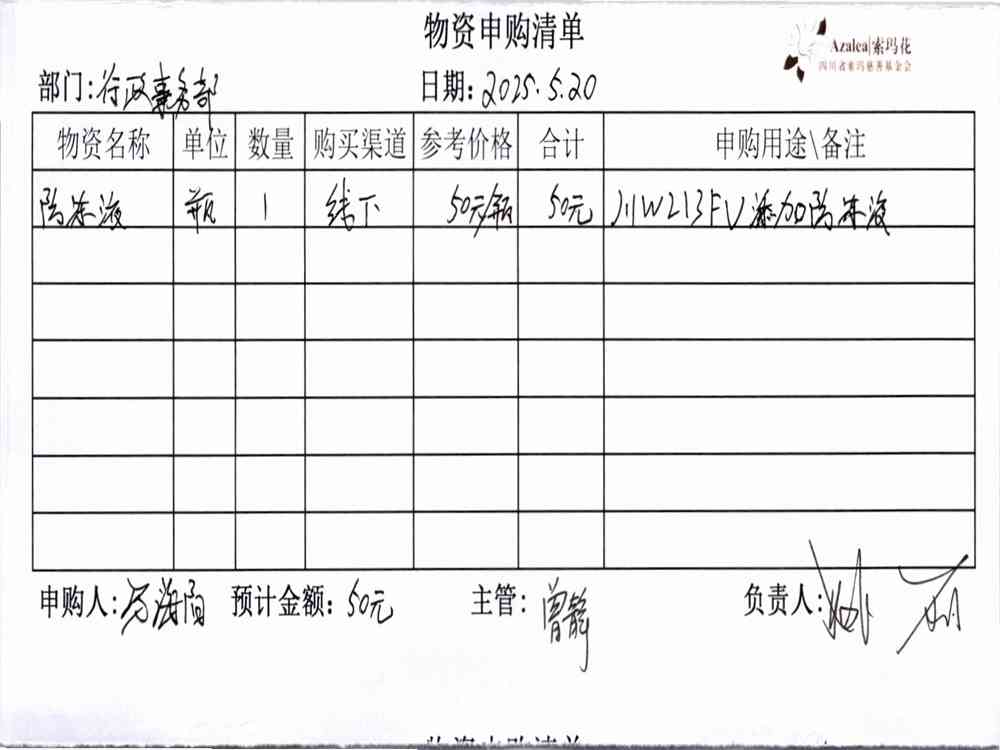 物资申购清单
Azalea|索玛花
四川省索玛慈善基金会
部门:行政事务部 日期:2025.5.20
物资名称 单位 数量 购买渠道 参考价格 合计 申购用途\备注
防冻液 瓶 1 线下 50元/瓶 50元 川W213FV添加防冻液
申购人:冯海阳 预计金额:50元 主管:曾静 负责人:
物资申购清单